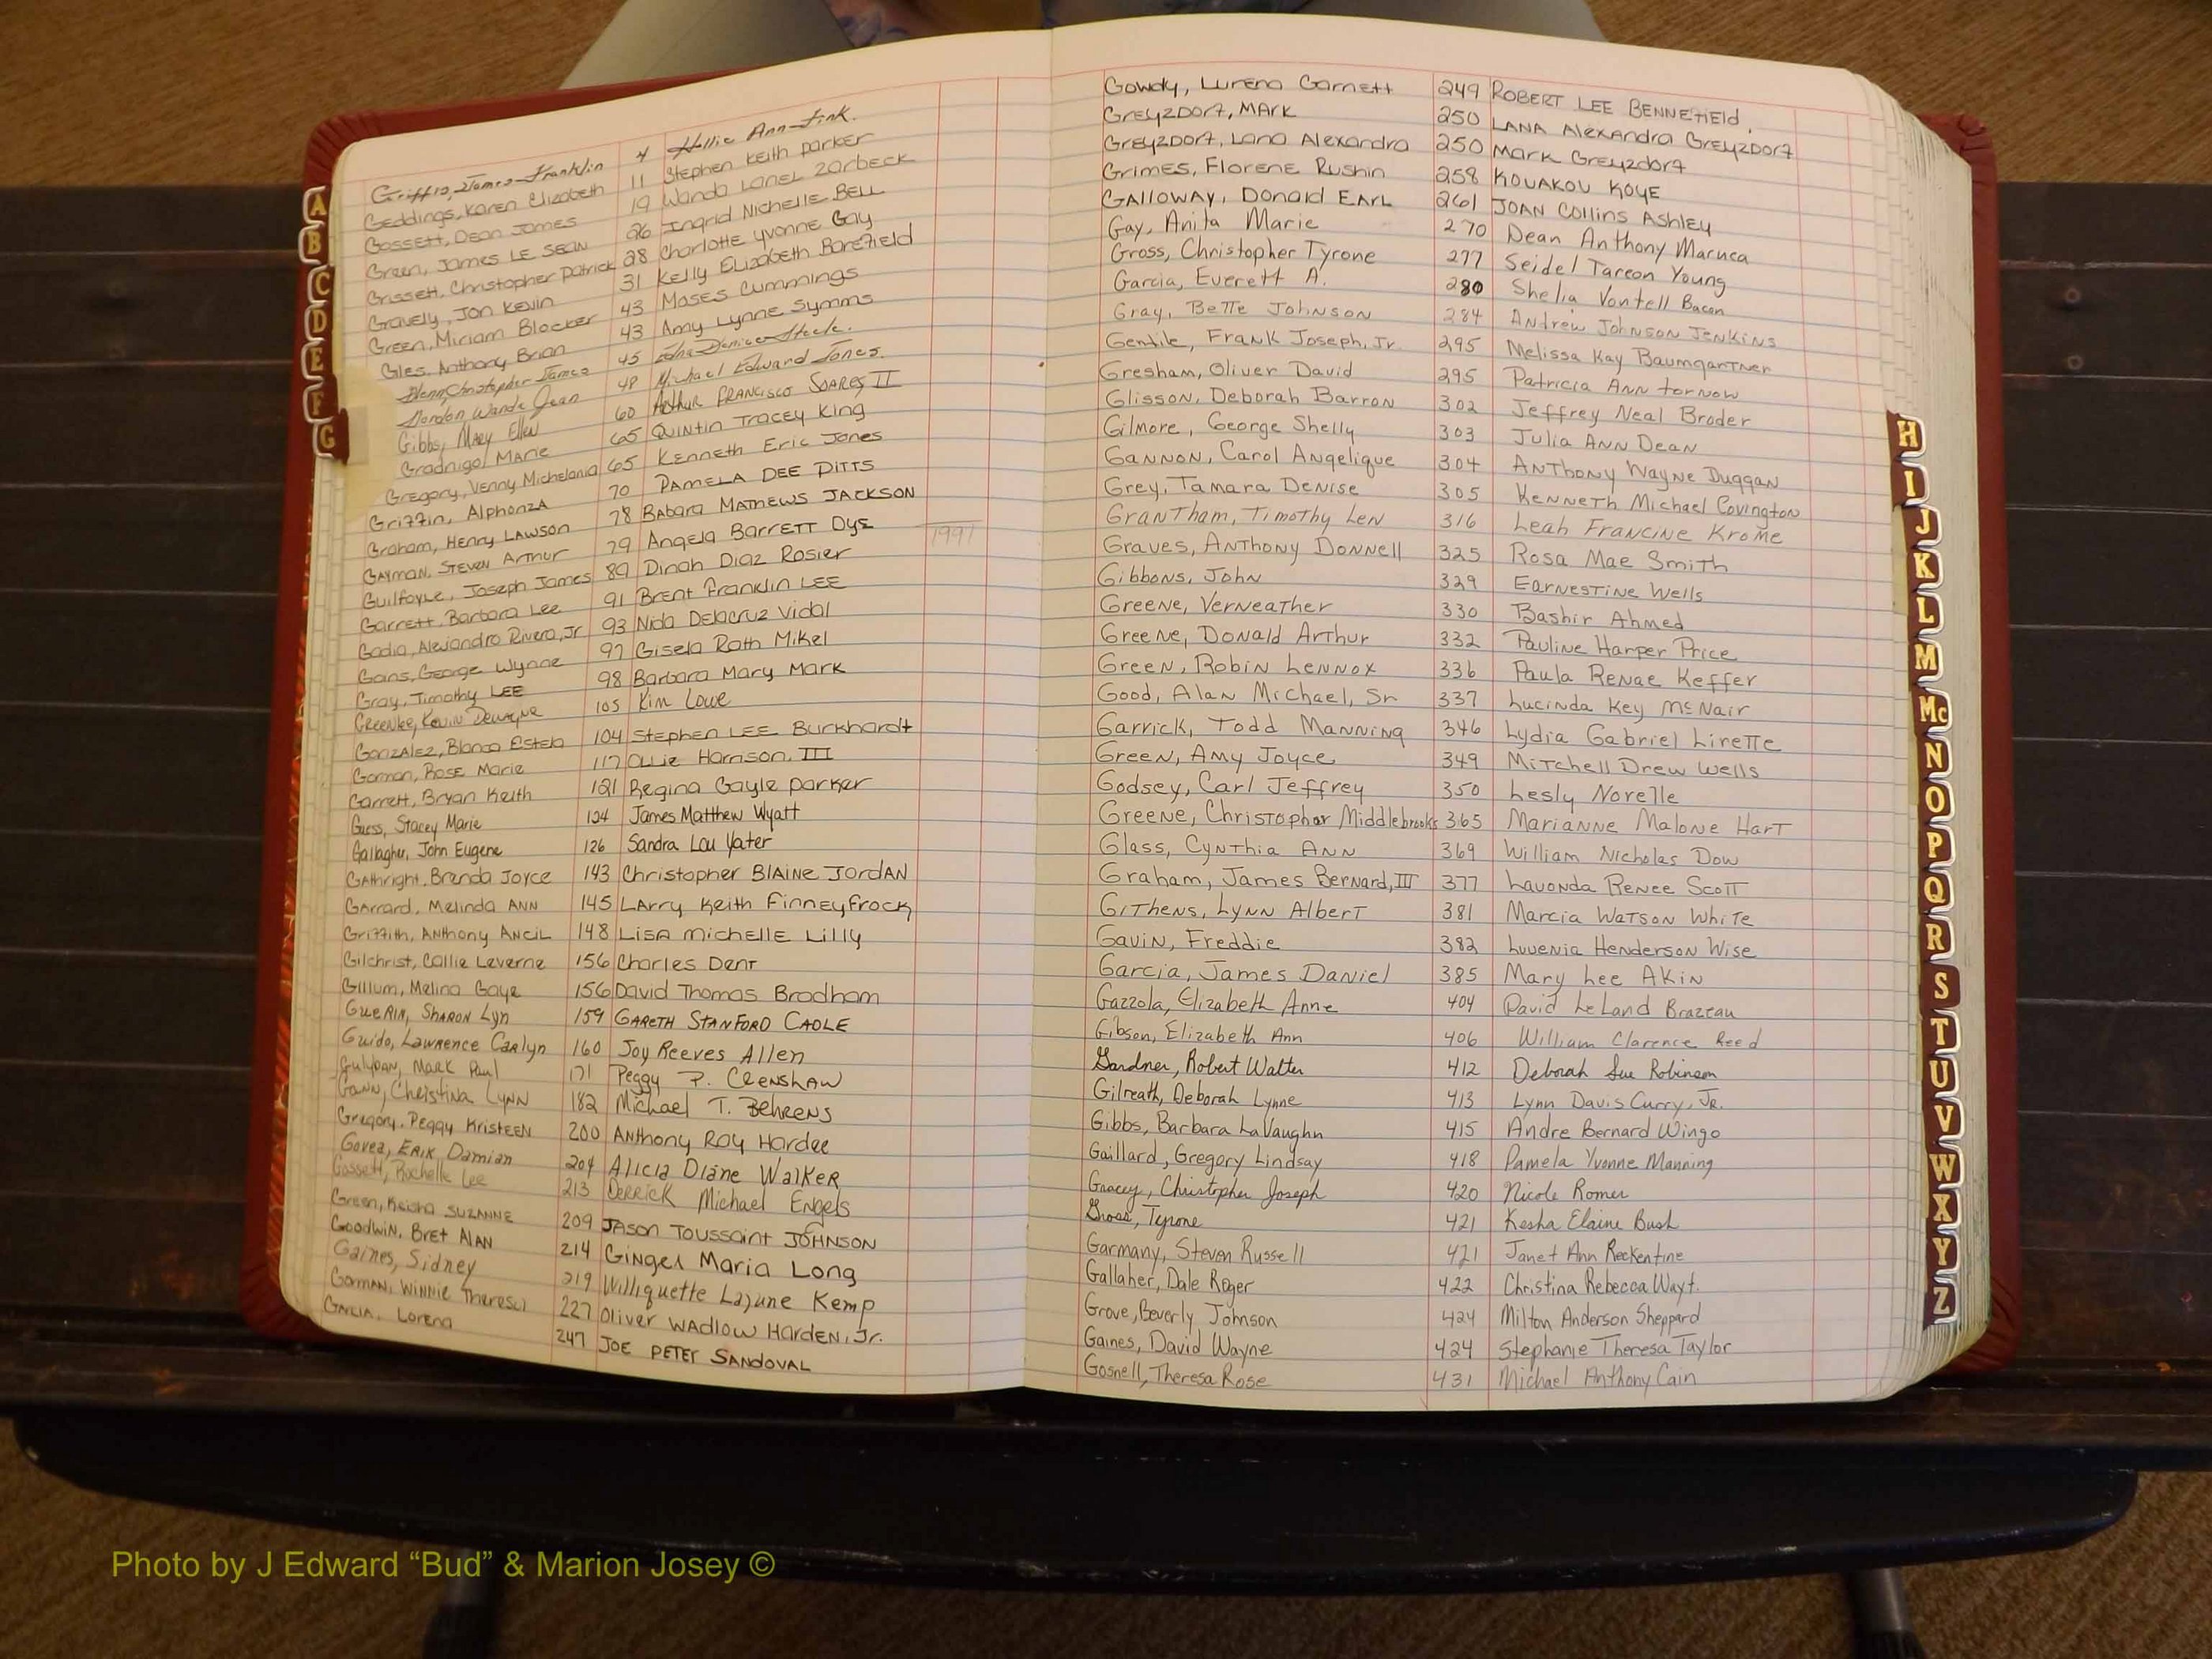 Griffis, James Franklin 4 Hollie Ann Fink.
Geddings, Karen Elizabeth 11 Stephen Keith Parker
Gossett, Dean James 19 Wanda Lanel Zarbeck
Green, James Le Sean 26 Ingrid Nichelle BELL
Grissett, Christopher Patrick 28 Charlotte Yvonne Gay
Gravely, Jon Kevin 31 Kelly Elizabeth Barefield
Green, Miriam Blocker 43 Moses Cummings
Giles, Anthony Brian 43 Amy Lynne Symms
Glenn, Christopher James 45 Edna Denice Steele.
Gordon, Wanda Jean 48 Michael Edward Jones.
Gibbs, Mary Ellen 60 Arthur Francisco Soares II
Gradnigo, Marie 65 Quintin Tracey King
Gregory, Venny Michelania 65 Kenneth Eric Jones
Griffin, Alphonza 70 PAMELA DEE PITTS
Graham, Henry Lawson 78 Babara Mathews Jackson
GAYMAN, STEVEN ARTHUR 79 Angela Barrett Dyе 1997
Guilfoyle, Joseph James 89 Dinah Diaz Rosier
Garrett, Barbara Lee 91 Brent Franklin LEE
Gadia, Alejandro Rivera, Jr 93 Nida Delacruz Vidal
Gans, George Wynne 97 Gisela Roth Mikel
Gray, Timothy LEE 98 Barbara Mary Mark
Greenlee, Kevin Dewayne 105 Kim Lowe
GonzAlez, Blanca Estela 104 Stephen LEE Burkhardt
Gorman, Rose Marie 117 Ollie Harrison, III
Garrett, Bryan Keith 121 Regina Gayle Parker
Guess, Stacey Marie 124 James Matthew Wyatt
Gallagher, John Eugene 126 Sandra Lou Yater
GAthright, Brenda Joyce 143 Christopher BlAine JordAN
GArrard, Melinda ANN 145 LArry Keith Finneyfrock
Griffith, ANthony ANCIL 148 LISA Michelle LILLY
Gilchrist, Callie Leverne 156 Charles Dent
Gillum, Melina Gaye 156 David Thomas Brodham
GueRIN, SHARON Lyn 159 GARETH STANFORD CAOLE
Guido, Lawrence Carlyn 160 Joy Reeves Allen
Gulydan, Mark Paul 171 Peggy P. CRENSHAW
Gann, Christina Lynn 182 Michael T. Behrens
Gregory, Peggy Kristeen 200 ANthony Roy Hardee
Govea, Erik Damian 204 Alicia Diane WalKeR
Gossett, Rochelle Lee 213 Derrick Michael Engels
Green, Keisha SUZANNE 209 JASON TOUSSAINT JOHNSON
Goodwin, Bret Alan 214 Ginger Maria Long
Gaines, Sidney 219 Williquette Lajune Kemp
Gorman, Winnie Theresa 227 Oliver WAdlow HARdEN, Jr.
GARCIA, Lorena 247 JOE PETER SANDOVAL
Gowdy, Lurena Garnett 249 ROBERT LEE BENNEFIEld
GREYZDORF, MARK 250 LANA Alexandra GREYZDORF
GREYZDORF, Lana Alexandra 250 Mark Greyzdorf
Grimes, Florene Rushin 258 KOUAKOU KOYE
GALLOWAY, Donald EARL 261 JOAN Collins Ashley
Gay, Anita Marie 270 Dean Anthony Maruca
Gross, Christopher Tyrone 277 Seidel Tareon Young
Garcia, Everett A. 280 Shelia Vontell Bacon
Gray, Bette Johnson 284 Andrew Johnson Jenkins
Gentile, Frank Joseph, Jr. 295 Melissa Kay Baumgartner
Gresham, Oliver David 295 Patricia Ann Tornow
Glisson, Deborah Barron 302 Jeffrey Neal Broder
Gilmore, George Shelly 303 Julia Ann Dean
Gannon, Carol Angelique 304 Anthony Wayne Duggan
Grey, Tamara Denise 305 Kenneth Michael Covington
Grantham, Timothy Len 316 Leah Francine Krome
Graves, Anthony Donnell 325 Rosa Mae Smith
Gibbons, John 329 Earnestine Wells
Greene, Verneather 330 Bashir Ahmed
Greene, Donald Arthur 332 Pauline Harper Price
Green, Robin Lennox 336 Paula Renae Keffer
Good, Alan Michael, Sr 337 Lucinda Key McNair
Garrick, Todd Manning 346 Lydia Gabriel Lirette
Green, Amy Joyce 349 Mitchell Drew Wells
Godsey, Carl Jeffrey 350 Lesly Norelle
Greene, Christopher Middlebrooks 365 Marianne Malone Hart
Glass, Cynthia Ann 369 William Nicholas Dow
Graham, James Bernard, III 377 Lavonda Renee Scott
Githens, Lynn Albert 381 Marcia Watson White
Gavin, Freddie 382 Luvenia Henderson Wise
Garcia, James Daniel 385 Mary Lee Akin
Gazzola, Elizabeth Anne 404 David LeLand Brazeau
Gibson, Elizabeth Ann 406 William Clarence Reed
Gardner, Robert Walter 412 Deborah Sue Robinson
Gilreath, Deborah Lynne 413 Lynn Davis Curry, Jr.
Gibbs, Barbara LaVaughn 415 Andre Bernard Wingo
Gaillard, Gregory Lindsay 418 Pamela Yvonne Manning
Gracey, Christopher Joseph 420 Nicole Romer
Gross, Tyrone 421 Kesha Elaine Bush
Garmany, Steven Russell 421 Janet Ann Reckentine
Gallaher, Dale Roger 422 Christina Rebecca Wayt.
Grove, Beverly Johnson 424 Milton Anderson Sheppard
Gaines, David Wayne 424 Stephanie Theresa Taylor
Gosnell, Theresa Rose 431 Michael Anthony Cain
A
B
C
D
E
F
G
H
I
J
K
L
M
Mc
N
O
P
Q
R
S
T
U
V
W
X
Y
Z
Photo by J Edward “Bud” & Marion Josey ©